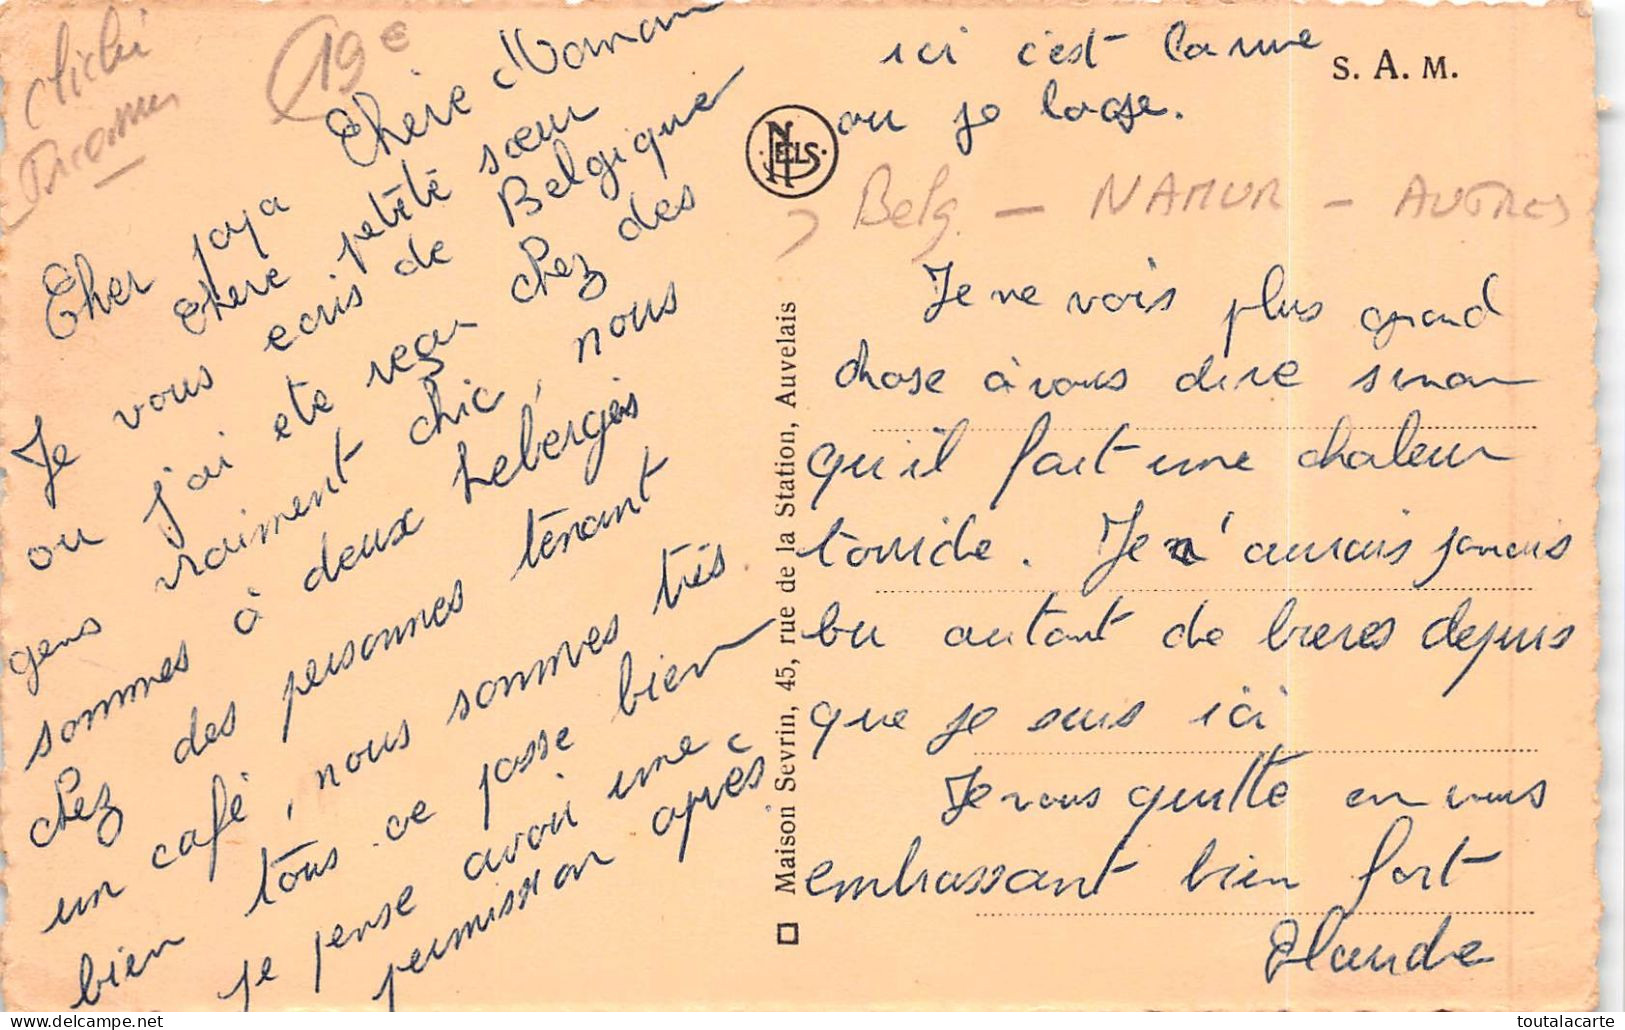 cliché
19€
Cher papa Chere Maman
chere petite sœur
Je vous ecris de Belgique
ou j'ai ete reçu chez des
gens vraiment chic, nous
sommes à deux hebergés
chez des personnes tenant
un café, nous sommes très
bien tous ce passe bien
je pense avoir une
permission après
ici c'est la rue
ou je loge.
S. A. M.
NELS
Belg. - NAMUR - AUTRES
Maison Sevrin, 45, rue de la Station, Auvelais
Je ne vois plus grand
chose à vous dire sinon
qu'il fait une chaleur
torride. Je n'aurais jamais
bu autant de bieres depuis
que je suis ici
Je vous quitte en vous
embrassant bien fort
Claude
toutalacarte